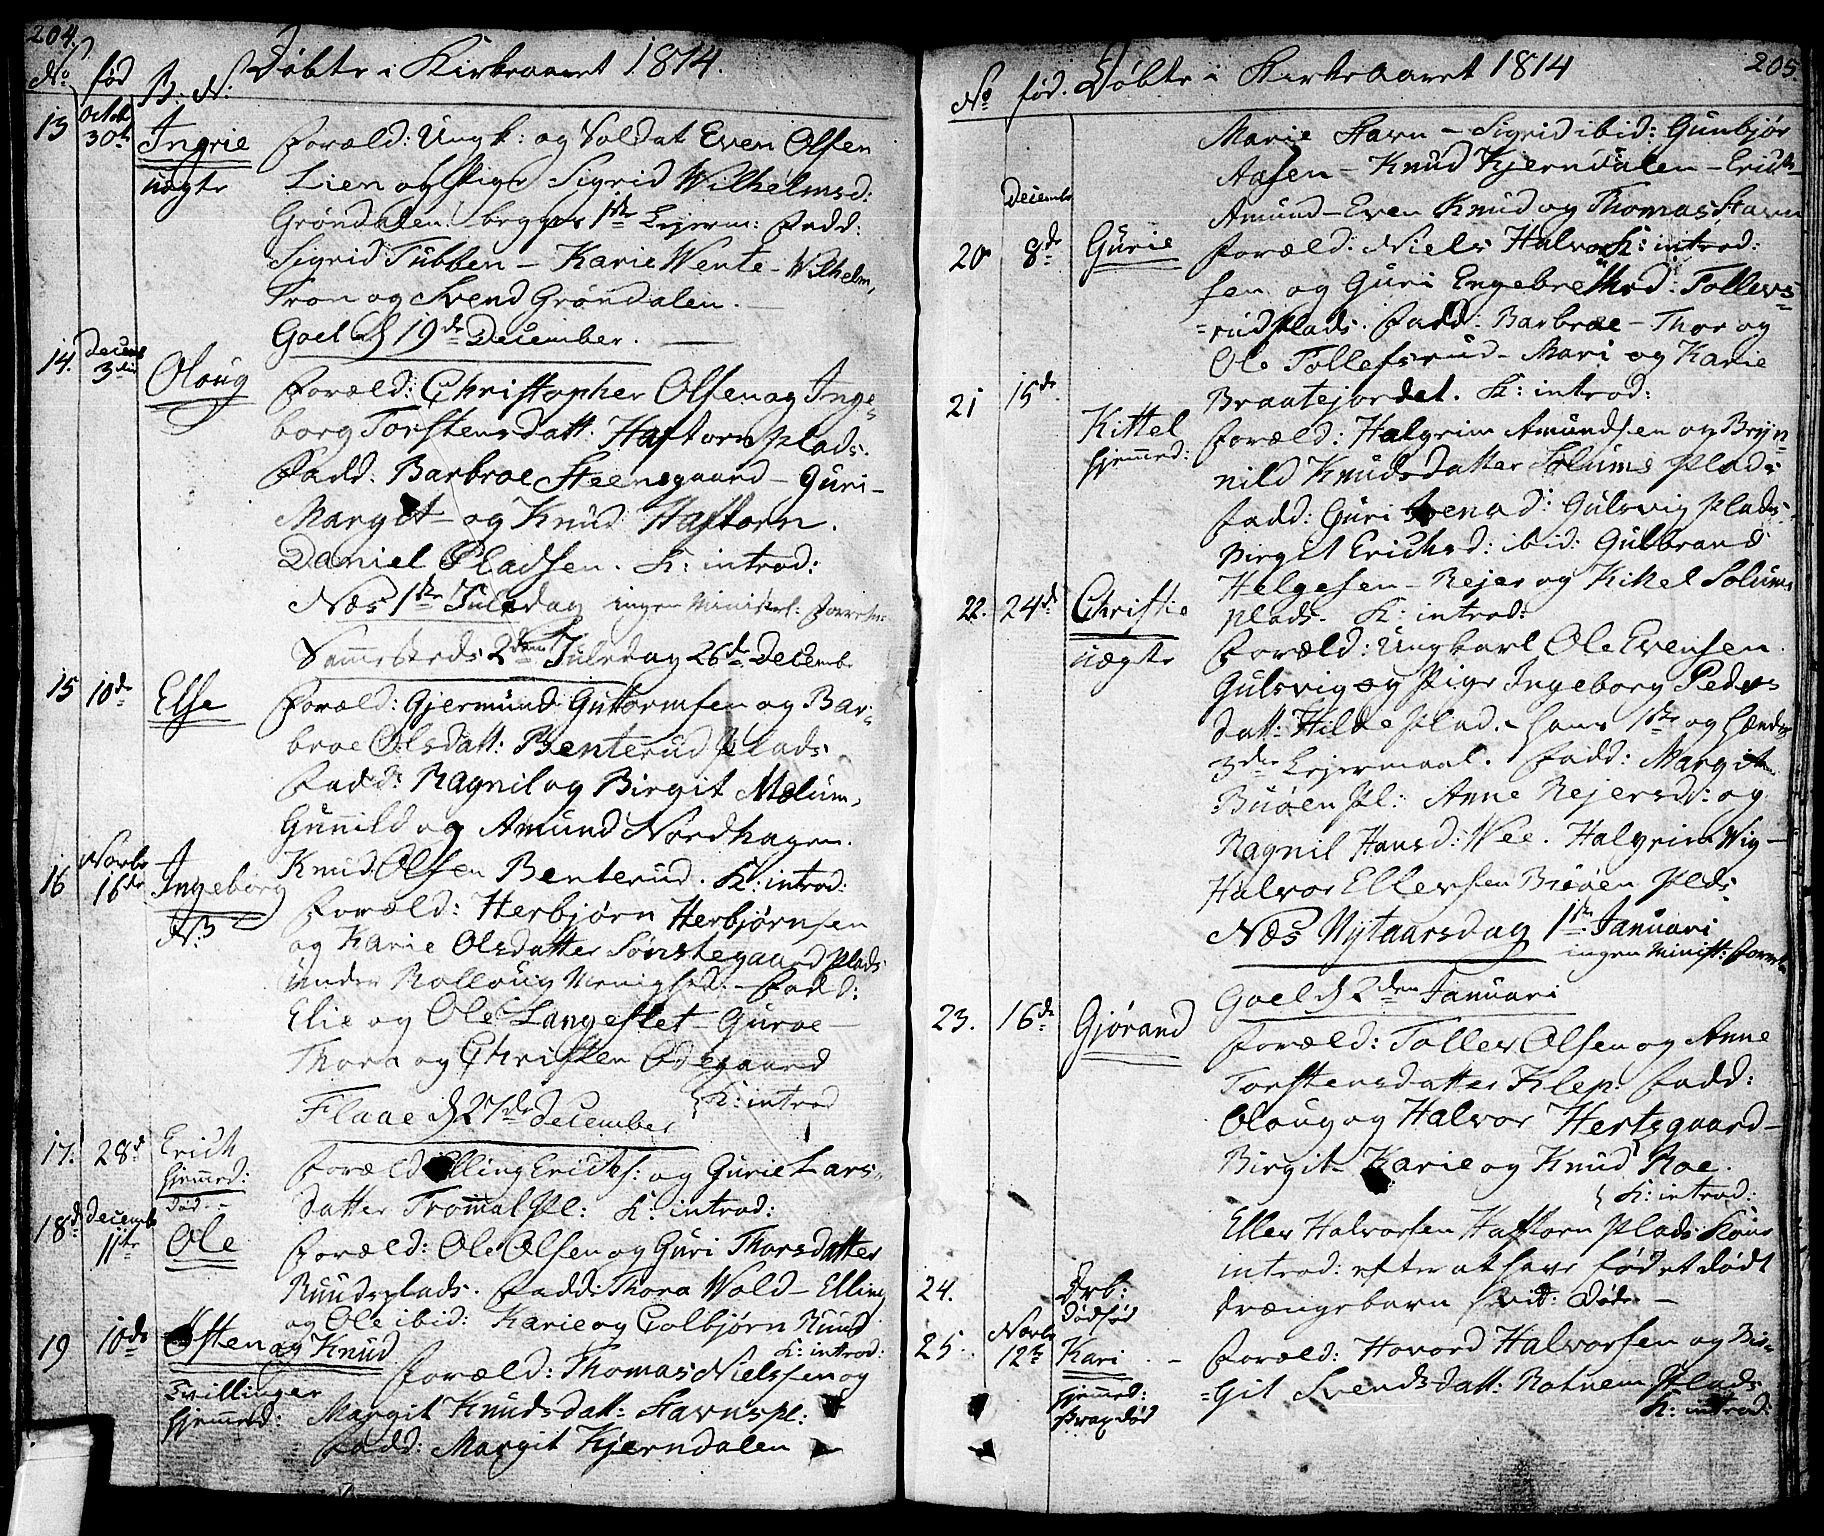 204.
No. fød B. N. Døbte i Kirkeaaret 1814.
13 Octob 30te Ingrie Foræld: Ungk: og Soldat Even Olsen
uægte Lien og Pige Sigrid Wilhelmsd:
Grøndalen begges 1ste Lejerm: Fadd:
Sigrid Tubben – Karie Wente – Wilhelm,
Tron og Svend Grøndalen. –
Goel d 19de December.
14. Decemb 3die Oloug Foræld: Christopher Olsen og Inge-
borg Torstensdatt. Haftorn Plads.
Fadd: Barbroe Steensgaard – Guri –
Margit – og Knud Haftorn.
Daniel Pladsen. K: introd:
Næs 1ste Juledag ingen Minist: Forretn:
Sammesteds 2den Juledag 26de Decembr
15 10de Else Foræld: Gjermund Guttormsen og Bar-
broe Olsdatt: Benterud Plads.
Fadd: Ragnil og Birgit Mælum,
Gunnild og Amund Nordhagen.
Knud Olsen Benterud. K: introd:
16 Novbr 16de Ingeborg Foræld: Herbjørn Herbjørnsen
NB og Karie Olsdatter Sønstegaard Plads
under Rolloug Menighed. – Fadd:
Elie og Ole Langeslet – Guroe –
Thora og Christen Ødegaard
K: introd
Flaae d 27de December
17. 28de Erich Foræld Elling Erichs: og Gurie Lars-
hjemmed: datter Trommal Pl: K: introd:
død –
18de Decemb 11te Ole Foræld: Ole Olsen og Guri Thorsdatter
Ruudsplads. Fadd: Thora Wold – Elling
og Ole ibid: Karie og Colbjørn Ruud
K: introd:
19 10de Østen og Knud Foræld: Thomas Nielssen og
Tvillinger
hjemmed: Margit Knudsdatt: Stavnspl:
Fadd: Margit Kjerndalen
205.
No. fød. Døbte i Kirkeaaret 1814
Marie Stavn – Sigrid ibid: Gunbjør
Aasen – Knud Kjerndalen – Erich –
Amund – Even Knud og Thomas Stavn
K: introd:
20 Decembr 8de Gurie Foræld: Niels Halvor-
sen og Guri Engebrethsd: Tollevs-
rudplads. Fadd: Barbroe – Thor og
Ole Tollefsrud – Mari og Karie
Braatejordet. K: introd:
21 15de Kittel Foræld: Halgrim Amundsen og Bryn-
hjemmed: nild Knudsdatter Solums Plads
Fadd: Guri Svensd: Gulsvig Plads.
Birgit Erichsd: ibid: Gulbrand
Helgesen – Rejer og Kittel Solums
plads. K: introd:
22. 24de Christie Foræld: Ungkarl Ole Evensen
uægte Gulsvig og Pige Ingeborg Peders
datt: Hilde Plad. – hans 1ste og hendes
3die Lejermaal. Fadd: Margit
Buøen Pl: Anne Rejersd: og
Ragnil Hansd: Wee. Halgrim Wig –
Halvor Ellevsen Buøen Plds:
Næs Nytaarsdag 1ste Januari
ingen Minist: Forretn
Goel d 2den Januari
23. 16de Gjørand Foræld: Tollev Olsen og Anne
Torstensdatter Klep: Fadd:
Oloug og Halvor Hertsgaard –
Birgit – Karie og Knud Roe.
K: introd:
Ellev Halvorsen Haftorn Plads Kone
introd: efter at have født et dødt
24. Drb: Drængebarn
dødfød
25. Novbr 12te Kari – Foræld: Hovord Halvorsen og Bir-
hjemmed: -git Svendsdatt: Rotnem Plads
strax død K: introd: